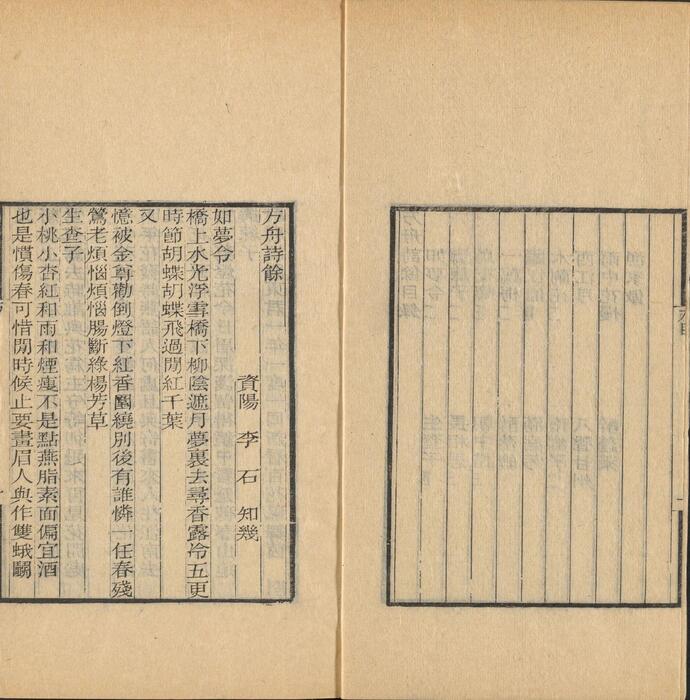 方舟詩餘
資陽 李石 知幾
如夢令
橋上水光浮雪橋下柳陰遮月夢裏去尋香露冷五更
時節胡蝶胡蝶飛過閒紅千葉
又
憶被金尊勸倒燈下紅香圍繞別後有誰憐一任春殘
鶯老煩惱煩惱腸斷綠楊芳草
生查子
小桃小杏紅和雨和煙瘦不是點燕脂素面偏宜酒
也是慣傷春可惜閒時候止要畫眉人與作雙蛾鬭